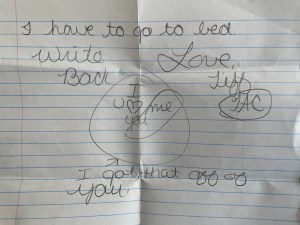 I have to go to bed
Write Love,
Back Tiff
TAC
I
U ♡ me
you
I got that off of
you.